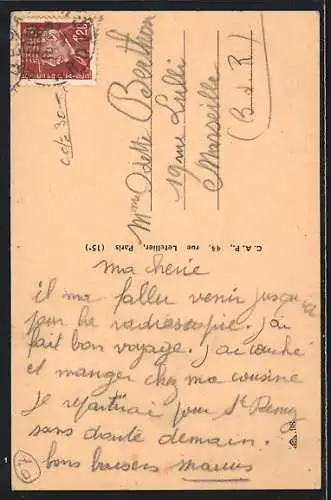 Mme Odette Berthon
19 rue Lulli
Marseille
(B. d. R)
cote 30
C. A. P., 44, rue Letellier, Paris (15e)
ma cherie
il ma fallu venir jusqu
pour la radioscopie. j'ai
fait bon voyage. j'ai couché
et manger chez ma cousine
je repartirai pour St Remy
sans doute demain.
bons baisers Marius
10